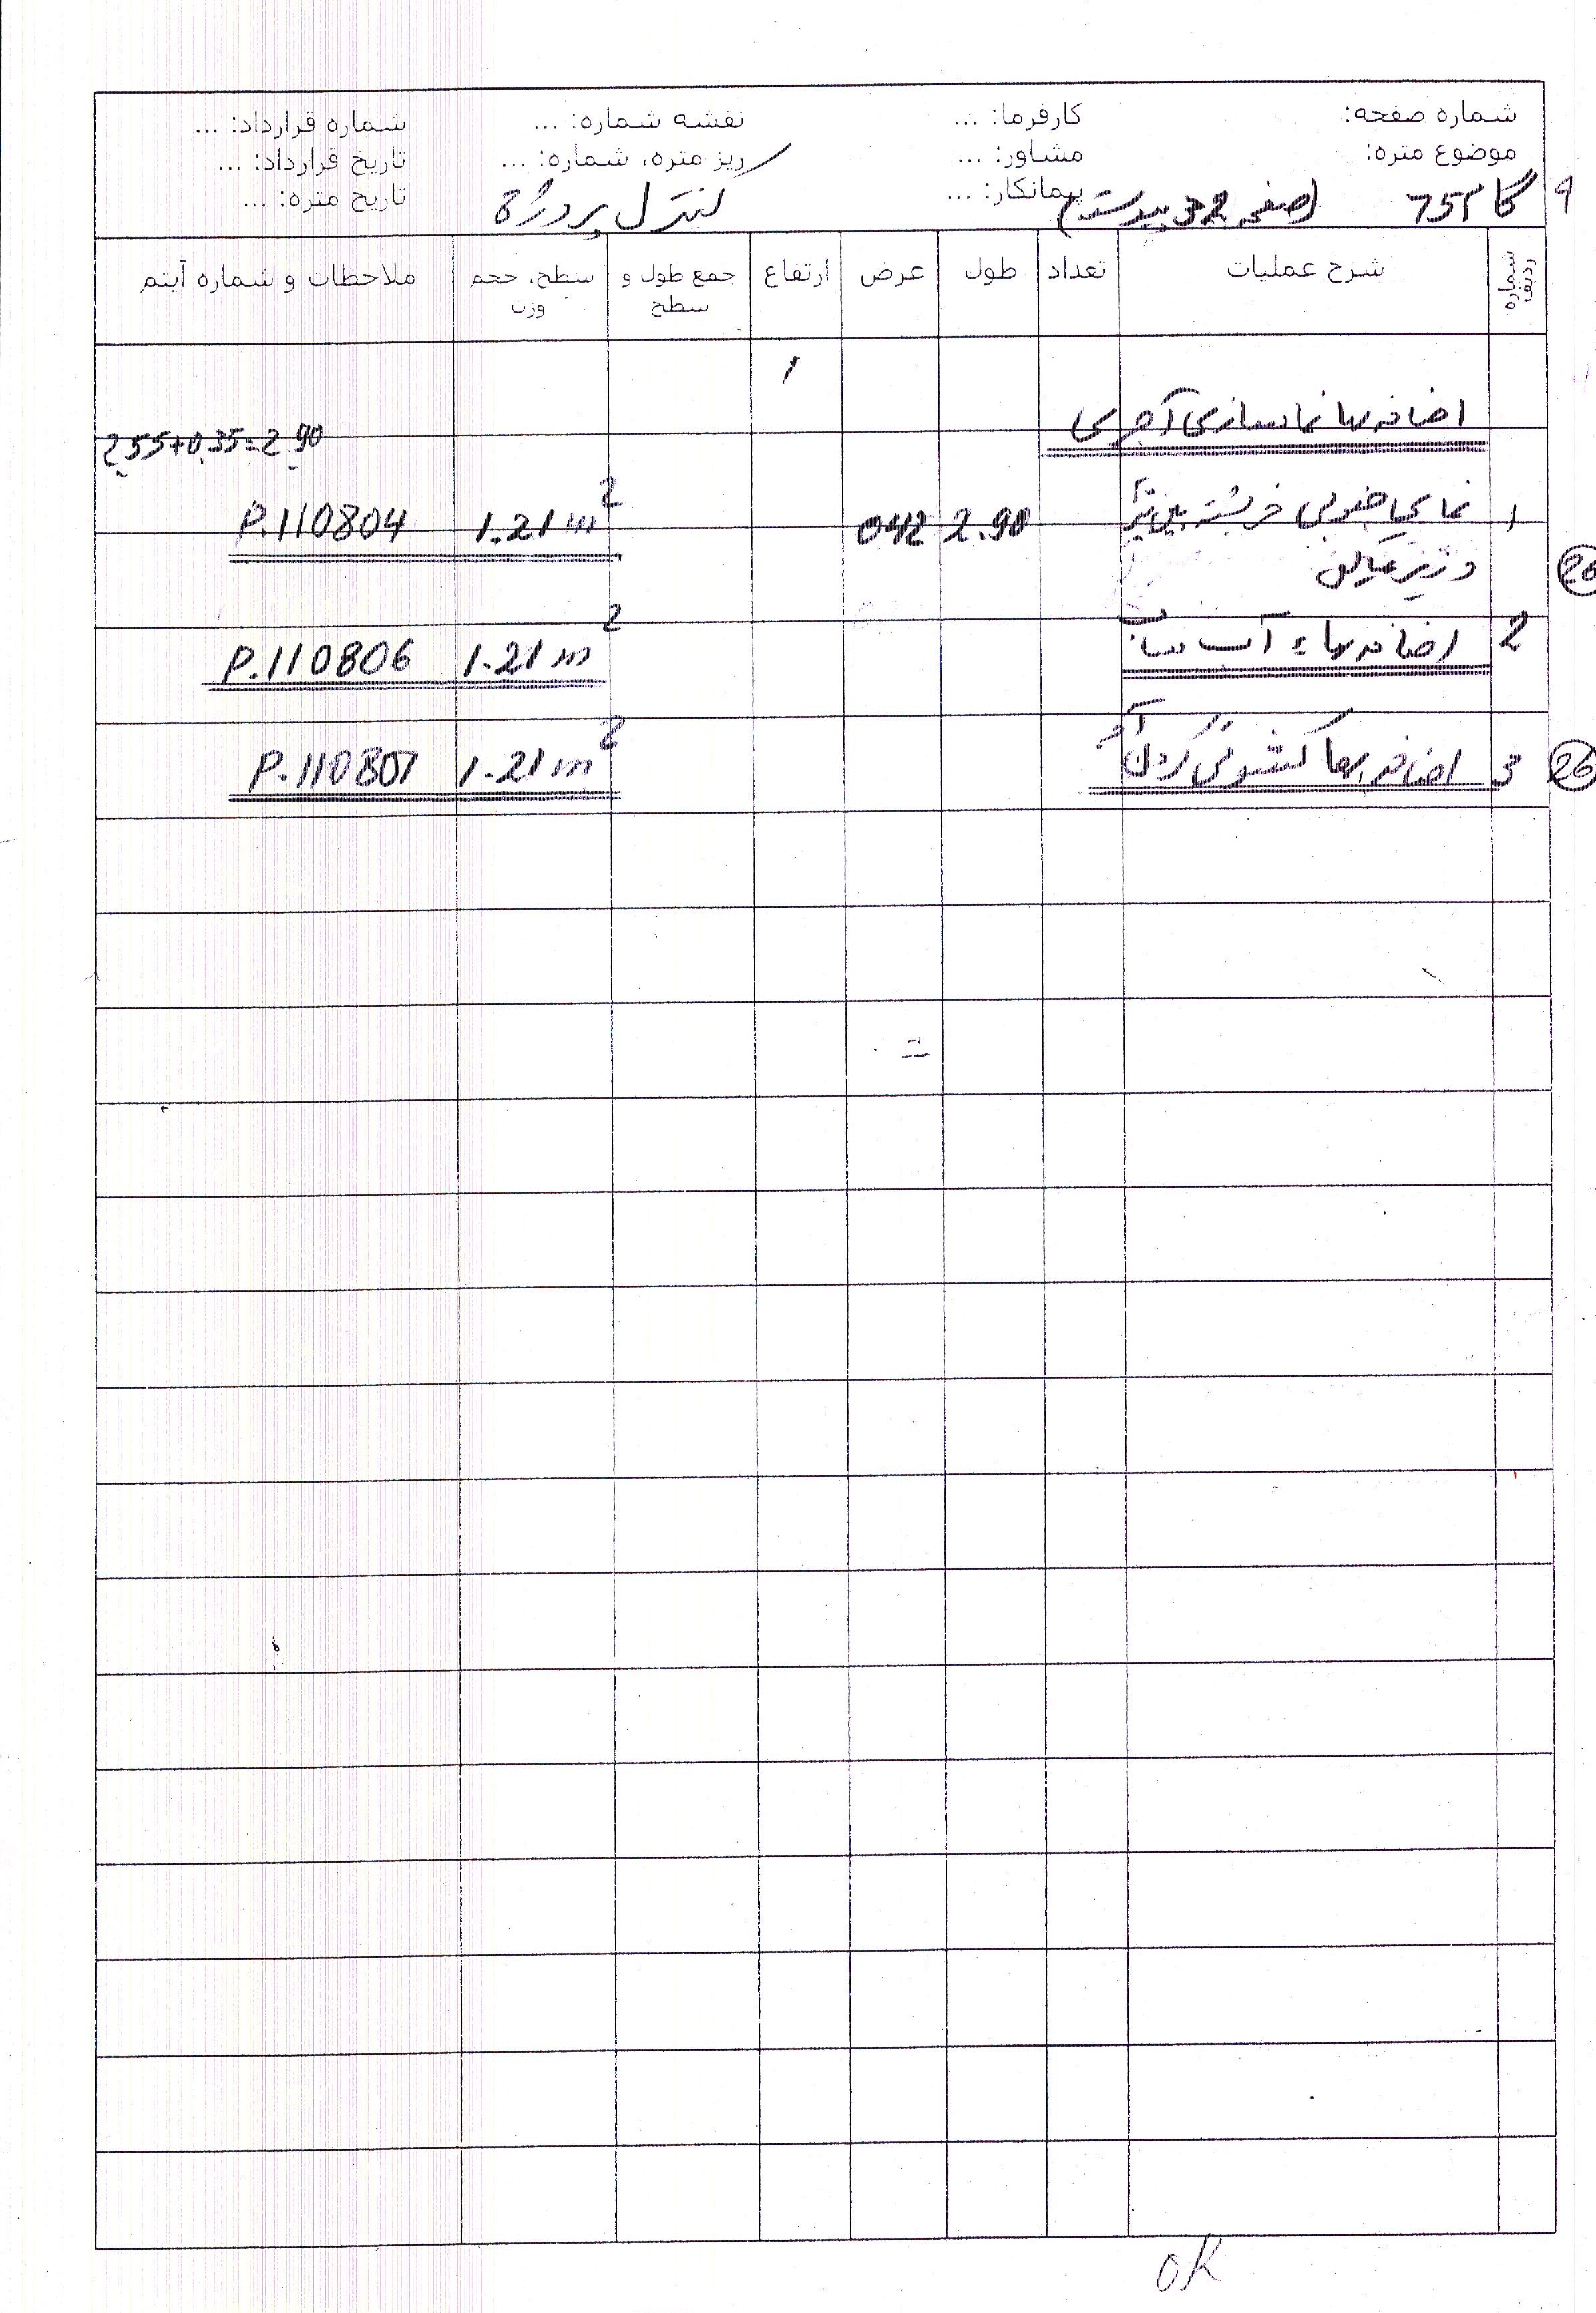 شماره صفحه:
کارفرما: ...
نقشه شماره: ...
شماره قرارداد: ...
موضوع متره:
مشاور: ...
ریز متره، شماره: ...
تاریخ قرارداد: ...
گام 75 (صفحه 32 پیوست)
پیمانکار: ...
کنترل پروژه
تاریخ متره: ...
9
شماره ردیف
شرح عملیات
تعداد
طول
عرض
ارتفاع
جمع طول و سطح
سطح، حجم وزن
ملاحظات و شماره آیتم
اضافه بها نماسازی آجری
2.55+0.35=2.90
1 نمای جنوبی خرپشته بین تیر 2.90 042 1.21 m² P.110804
و زیر
26
2 اضافه بهاء آب ساب 1.21 m² P.110806
3 اضافه بها کشوئی کردن آجر 1.21 m² P.110807
26
OK